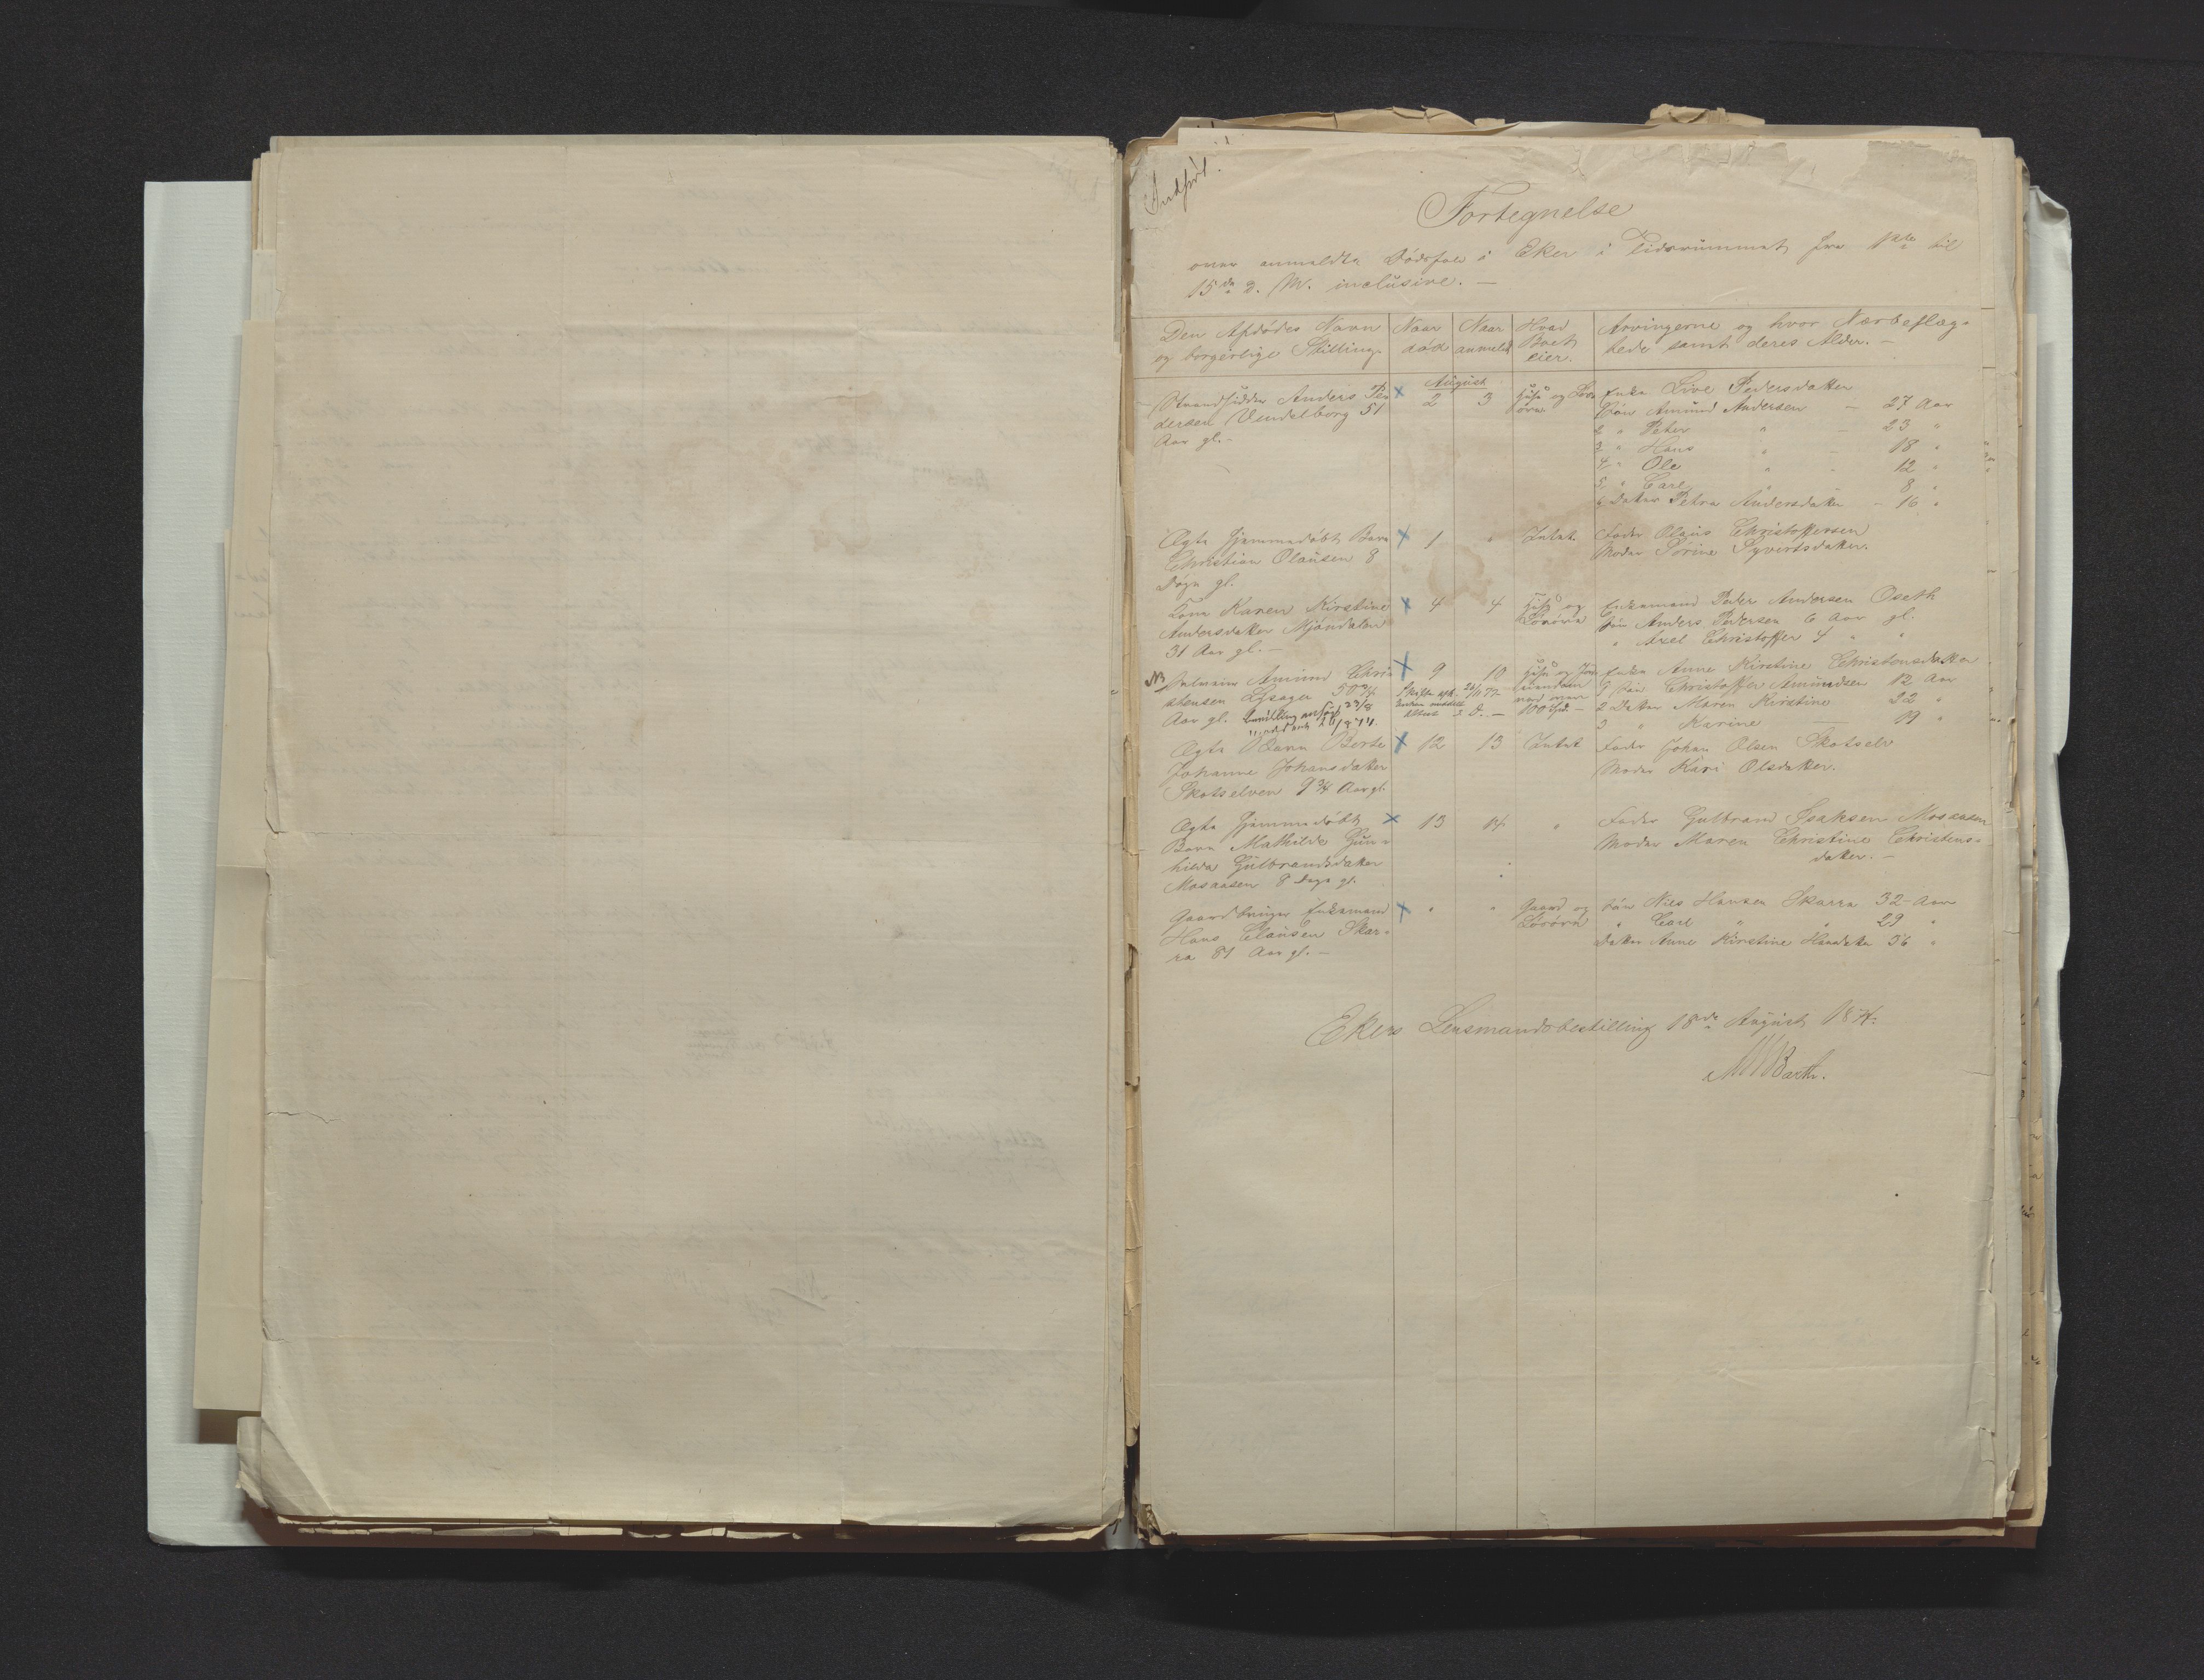 Indført.
Fortegnelse
over anmeldte Dødsfald i Eker i Tidsrummet fra 1ste til
15de d. M. inclusive. —
Den Afdødes Navn
og borgerlige Stilling.
Naar
død
Naar
anmeldt
Hvad
Boet
eier.
Arvingerne og hvor Nærbeslæg-
tede samt deres Alder. —
August
Strandsidder Anders Pe-
dersen Vendelborg 51
Aar gl. —
2
3
Huus og Løs-
øre
Enke Live Pedersdatter
Søn Amund Andersen — 27 Aar
2 " Peter " — 23 "
3 " Hans " - 18 "
4 " Ole " - 12 "
5 " Carl " 8 "
6 Datter Petra Andersdatter - 16 "
Ægte hjemmedøbt Barn
Christian Olausen 8
Døgn gl.
1
"
Intet.
Fader Olaus Christoffersen
Moder Sørine Syvertsdatter.
Kone Karen Kirstine
Andersdatter Mjøndalen
31 Aar gl. —
4
4
Huus og
Løsøre
Enkemand Peder Andersen Oseth
Søn Anders Pedersen 6 Aar gl.
" Axel Christoffer 4 " "
NB
Amund Chri-
stensen Lysager 50 3/4
Aar gl.
9
10
Huus og
100 Spd. —
Enke Anne Kirstine Christensdatter
1 Søn Christoffer Amundsen 12 Aar
2 Datter Maren Kirstine 22 "
3 " Karine — 19 "
Ægte Barn Berte
Johanne Johansdatter
Skotselven 9 3/4 Aar gl.
12
13
Intet
Fader Johan Olsen Skotselv
Moder Kari Olsdatter.
Ægte hjemmedøbt
Barn Mathilde Gun-
hilda Gulbrandsdatter
Mosaasen 8 Dage gl.
13
14
"
Fader Gulbrand Isaksen Mosaasen
Moder Maren Christine Christens-
datter. —
Gaardbruger Enkemand
Hans Clausen Skar-
ra 81 Aar gl. —
"
"
Gaard og
Løsøre
Søn Nils Hansen Skarra 32 Aar
" Carl " " 29 "
Datter Anne Kirstine Hansdatter 36 "
Ekers Lensmandsbestilling 18de August 1874.
Barth.